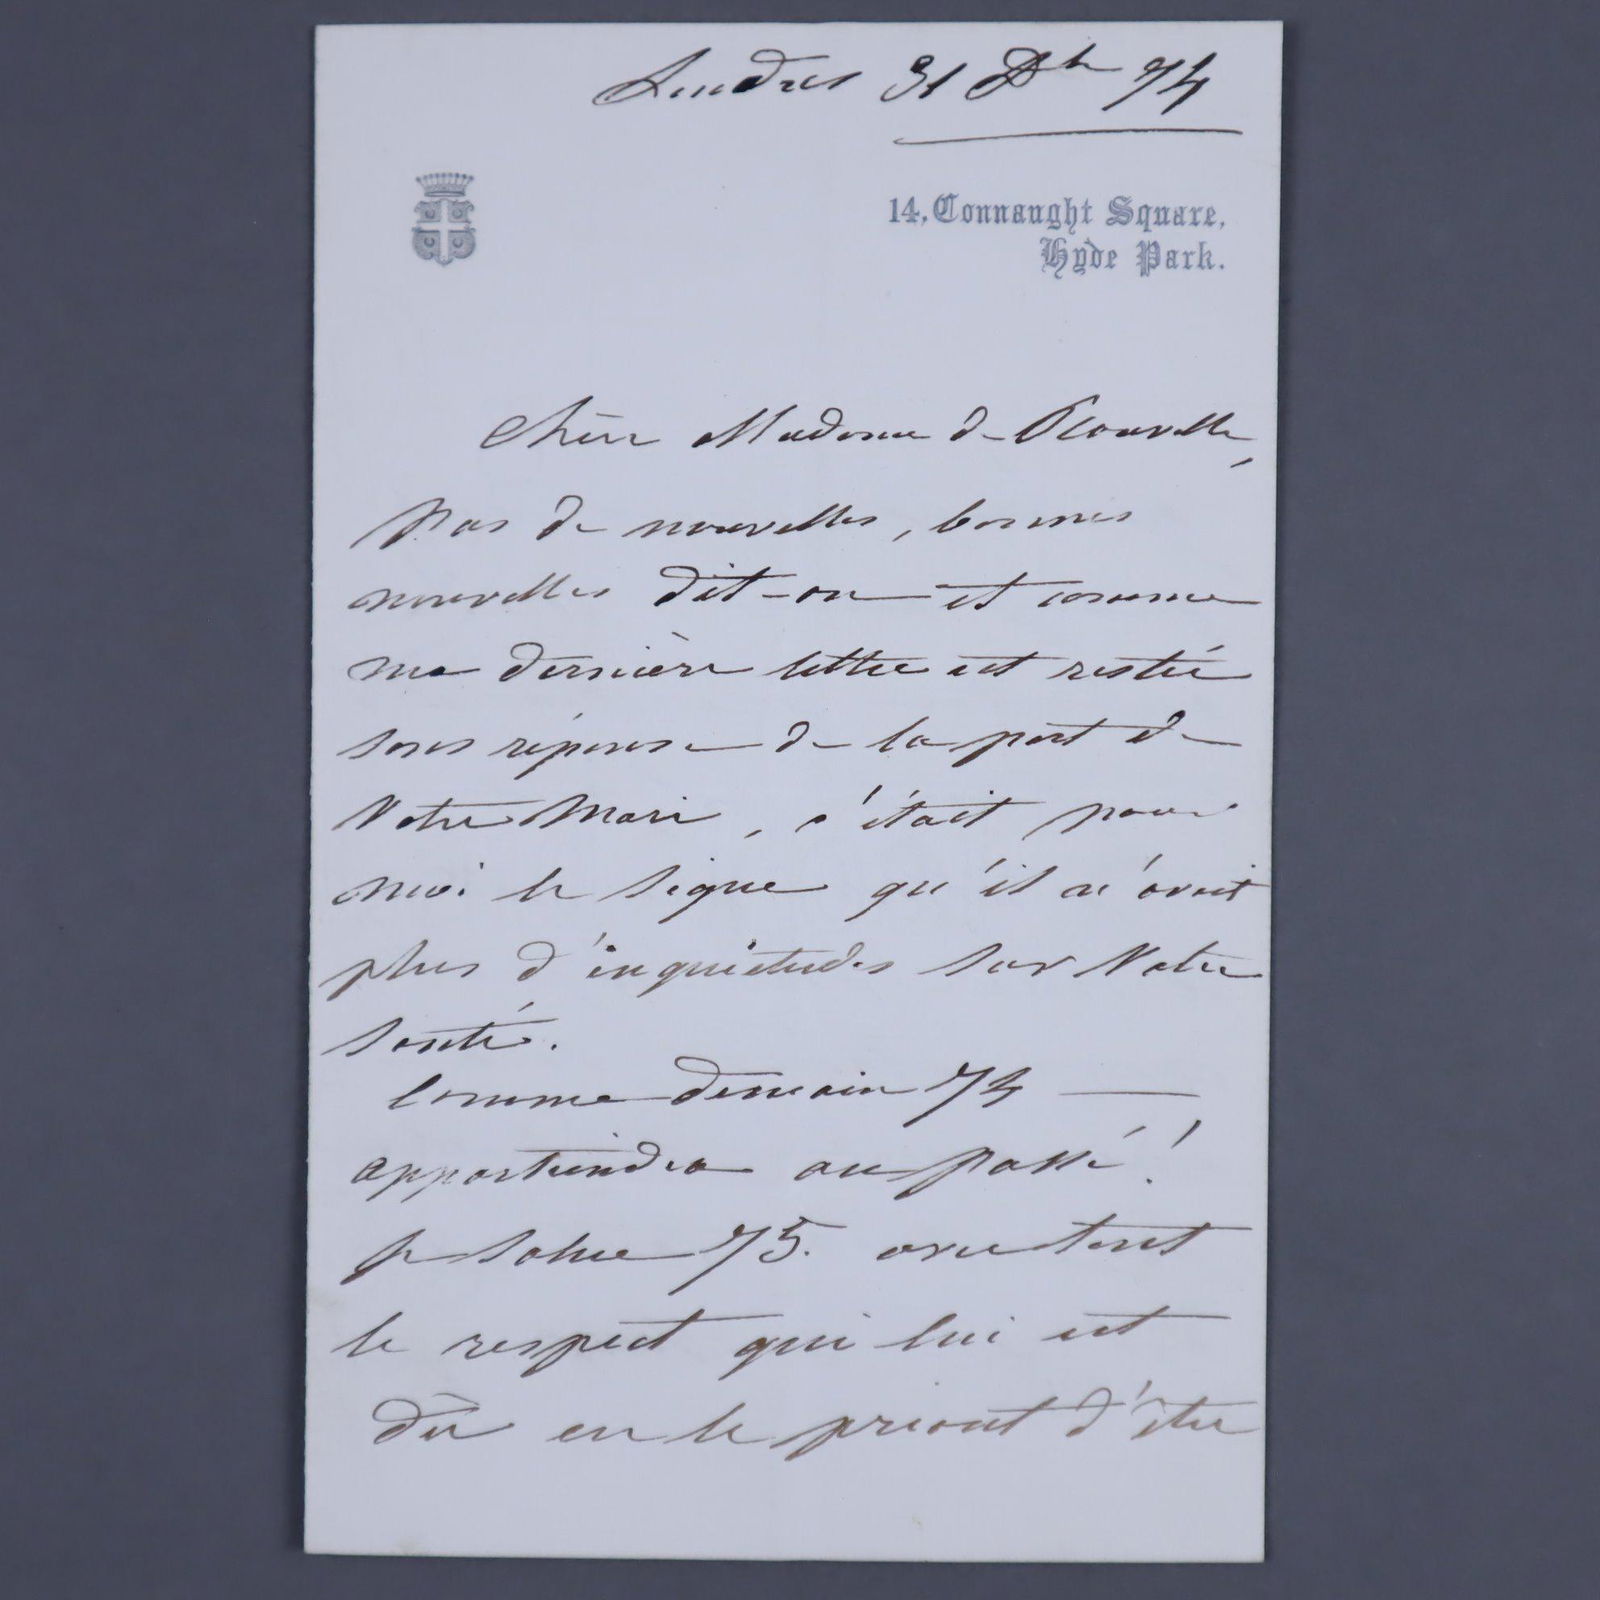 Londres 31 Dbr 74
14, Connaught Square,
Hyde Park.
Chère Madame de
pas de nouvelles, bonnes
nouvelles dit-on et comme
ma dernière lettre est restée
sans réponse de la part de
Votre Mari, c'était pour
moi le signe qu'il n'avait
plus d'inquiétudes sur Votre
santé.
Comme demain 74 —
appartiendra au passé!
je salue 75. avec tout
le respect qui lui est
dû en le priant d'être